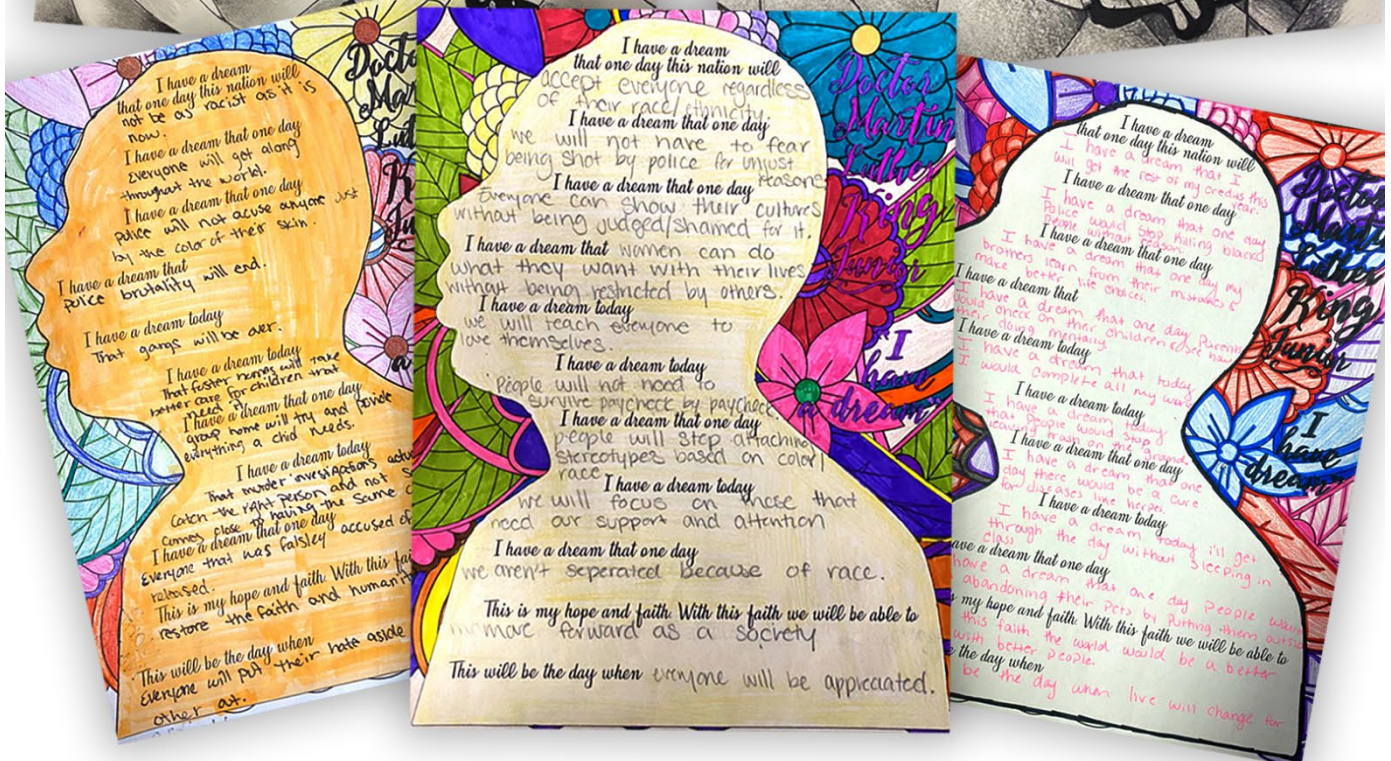 I have a dream
that one day this nation will
not be as racist as it is
now.
I have a dream that one day
Everyone will get along
throughout the world.
I have a dream that one day
Police will not acuse anyone Just
by the color of their skin.
I have a dream that
police brutality will end.
I have a dream today
That gangs will be over.
I have a dream today
That foster homes will take
better care for children that
need it.
I have a dream that one day
group home will try and provide
everything a chid needs.
I have a dream today
That murder investigations
catch the right person and not
comes close to having the same
I have a dream that one day
Everyone that was falsley accused of
released.
This is my hope and faith. With this
restore the faith and
This will be the day when
Everyone will put their hate aside
other at.
Docto
Mar
Lut
K
Ju
I have a dream
that one day this nation will
accept everyone regardless
of their race/ethnicity.
I have a dream that one day
we will not have to fear
being shot by police for unjust
reasons
I have a dream that one day
Everyone can show their cultures
without being judged/shamed for it.
I have a dream that women can do
what they want with their lives
without being restricted by others.
I have a dream today
we will teach everyone to
love themselves.
I have a dream today
People will not need to
survive paycheck by paycheck.
I have a dream that one day
people will stop attaching
stereotypes based on color/
race
I have a dream today
we will focus on these that
need our support and attention
I have a dream that one day
we aren't seperated because of race.
This is my hope and faith. With this faith we will be able to
move forward as a society
This will be the day when everyone will be appreciated.
Doctor
Martin
Luther
King
Junior
"I
have
a dream"
I have a dream
that one day this nation will
I have a dream that I
will get the rest of my credits this
year.
I have a dream that one day
I have a dream that one day
Police would stop killing blacked
people without reason.
I have a dream that one day
I have a dream that one day my
brothers learn from their mistakes &
make better life choices.
I have a dream that
I have a dream that one day Parents
would check on their children & see how
their doing mentally.
I have a dream today
I have a dream that today
I would complete all my work
I have a dream today
I have a dream today
that people would stop
leaving trash on the ground
I have a dream that one day
I have a dream that one
day there would be a cure
for diseases like herpes.
I have a dream today
I have a dream today i'll get
through the day without sleeping in
class
ave a dream that one day
have a dream that one day people
abandoning their pets by putting them outside
my hope and faith. With this faith we will be able to
this faith the world would be a better
with better people.
the day when
be the day when live will change for
Doctor
Martin
Luther
King
Junior
I
have
dream"